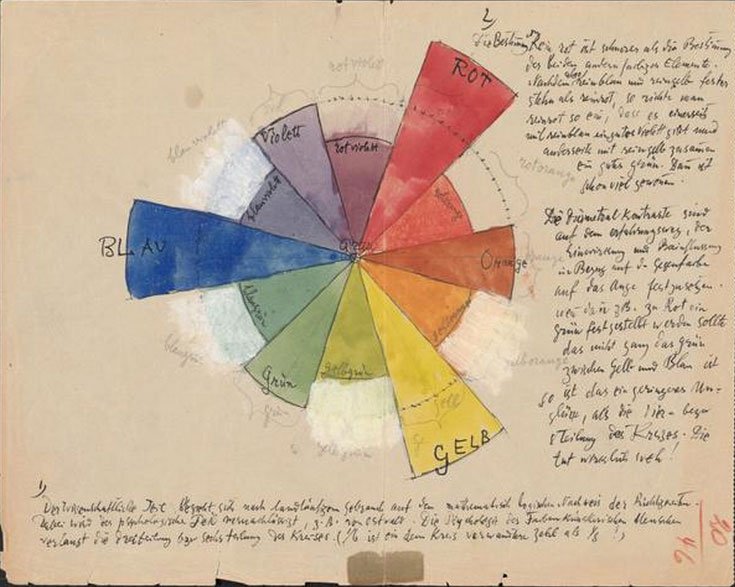 2)
Die Bestimmung Rein rot ist schwerer als die Bestimmung
der beiden andern farbigen Elemente.
Nachdem aber reinblau und reingelb fester
stehn als reinrot, so richte man
reinrot so ein, dass es einerseits
mit reinblau ein gutes violett gibt und
anderseits mit reingelb zusammen
ein gutes grün. Dann ist
schon viel gewonnen.
Die Diametral Kontraste sind
auf dem erfahrungsweg, der
Einwirkung und Beeinflussung
in Bezug auf die Gegenfarbe
auf das Auge festzusetzen.
wenn dann z.B. zu Rot ein
grün festgestellt werden sollte
das nicht ganz das grün
zwischen Gelb und Blau ist
so ist das ein geringeres Un-
glück, als die
teilung des Kreises. Die
tut wirklich weh!
rotviolett
violett
rotviolett
ROT
blauviolett
blauviolett
rotorange
rotorange
BLAU
Grau
Orange
orange
blaugrün
blaugrün
gelborange
gelborange
Grün
grün
gelbgrün
gelbgrün
gelb
GELB
1)
Der wissenschaftliche Teil bezieht sich nach landläufigem gebrauch auf den mathematisch logischen Nachweis der Richtigkeiten.
Dabei wird der psychologische Teil vernachlässigt, z.B. von Ostwald. Die Psychologie des Farbenkünstlerischen Menschen
verlangt die dreiteilung bzw sechsteilung des Kreises. (1/6 ist ein dem Kreis verwandtere Zahl als 1/8!)